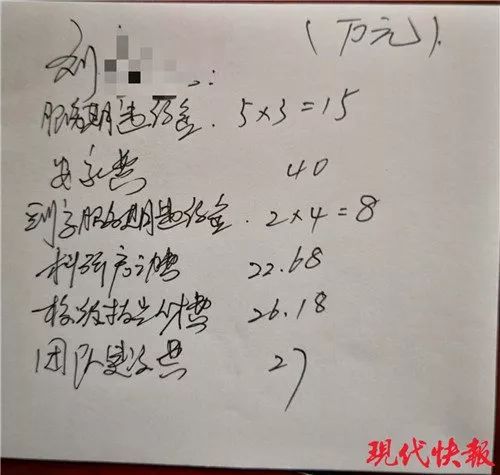 (万元).
刘 :
服务期违约金. 5×3=15
安家费 40
服务期违约金. 2×4=8
科研 费 22.68
校级拔尖人才费 26.18
团队建设费 27
现代快報